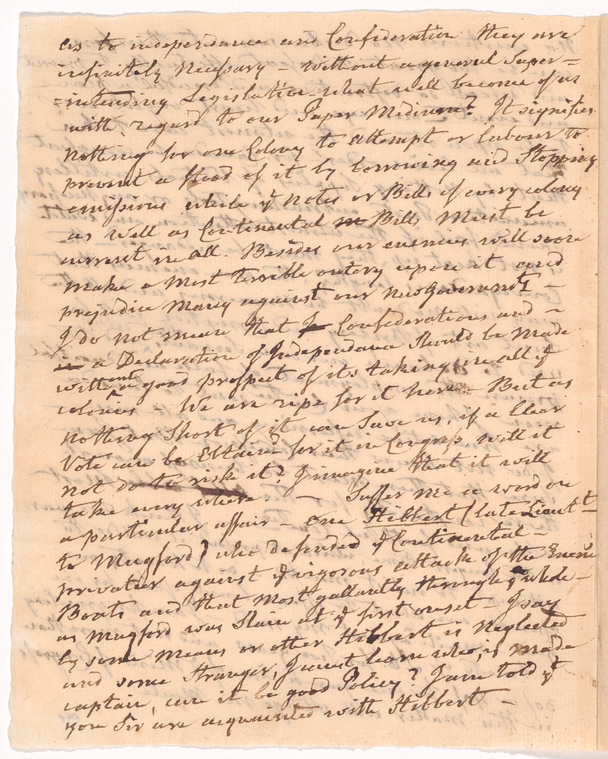 as to independance and Confideration they are
infinitely Necessary – without a general Super=
=intending Legislative what will become of us
with regard to our Paper Midium? It signifies
Nothing for one Colony to attempt or labour to
prevent a flood of it by borrowing and Stopping
emissions while ye Notes or Bills of every colony
as well as Continental in Bills Must be
current in all. Besides our enemies will soon
make a Most terrible outcry upon it and
prejudice Many against our New Government –
I do not mean that Confiderations and –
in a Declaration of Independance Should be made
without a good prospect of its taking in all ye
colonies – We are ripe for it here – But as
nothing Short of it can Save us, if a Clear
Vote can be Obtain'd for it in Congress, will it
not do to risk it? I imagine that it will
take every where – Suffer me a word on
a particular affair – one Hibbert (late Lieut
to Mugford) who defended ye Continental –
privateer against ye vigorous attack of the Enemi
Boats and that Most gallantly through ye whole –
as Mugford was Slain at ye first onset – I say
by some means or other Hibbert is Neglected
and some Stranger, I must learn who, is made
captain, can it be good Policy? I am told yt
you Sir are acquainted with Hibbert –